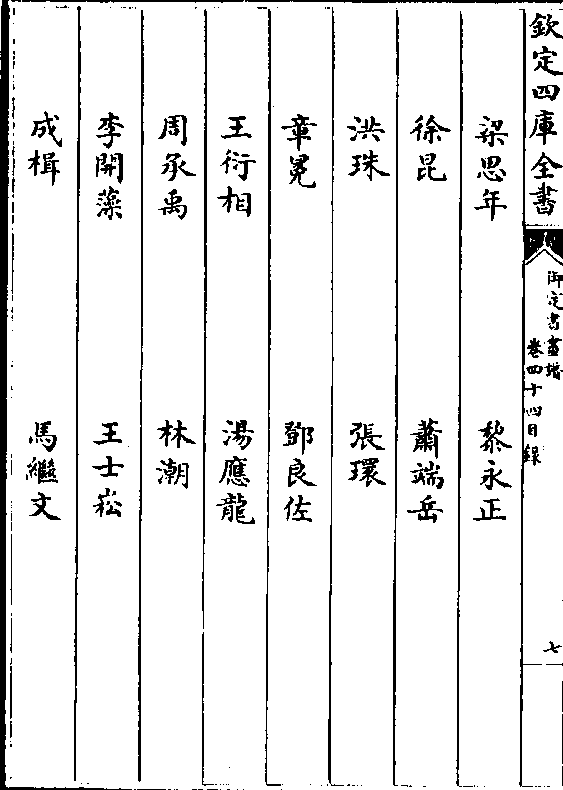 欽定四庫全書
御定書畫譜
卷四十四目錄
七
梁思年　黎永正
徐昆　蕭端岳
洪珠　張環
章冕　鄧良佐
王衍相　湯應龍
周丞禹　林潮
李開藻　王士崧
成楫　馬繼文